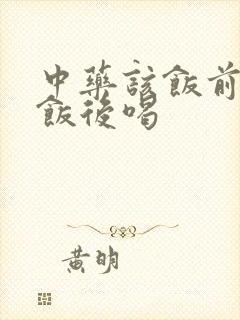 中藥該飯前
飯後喝
黃明